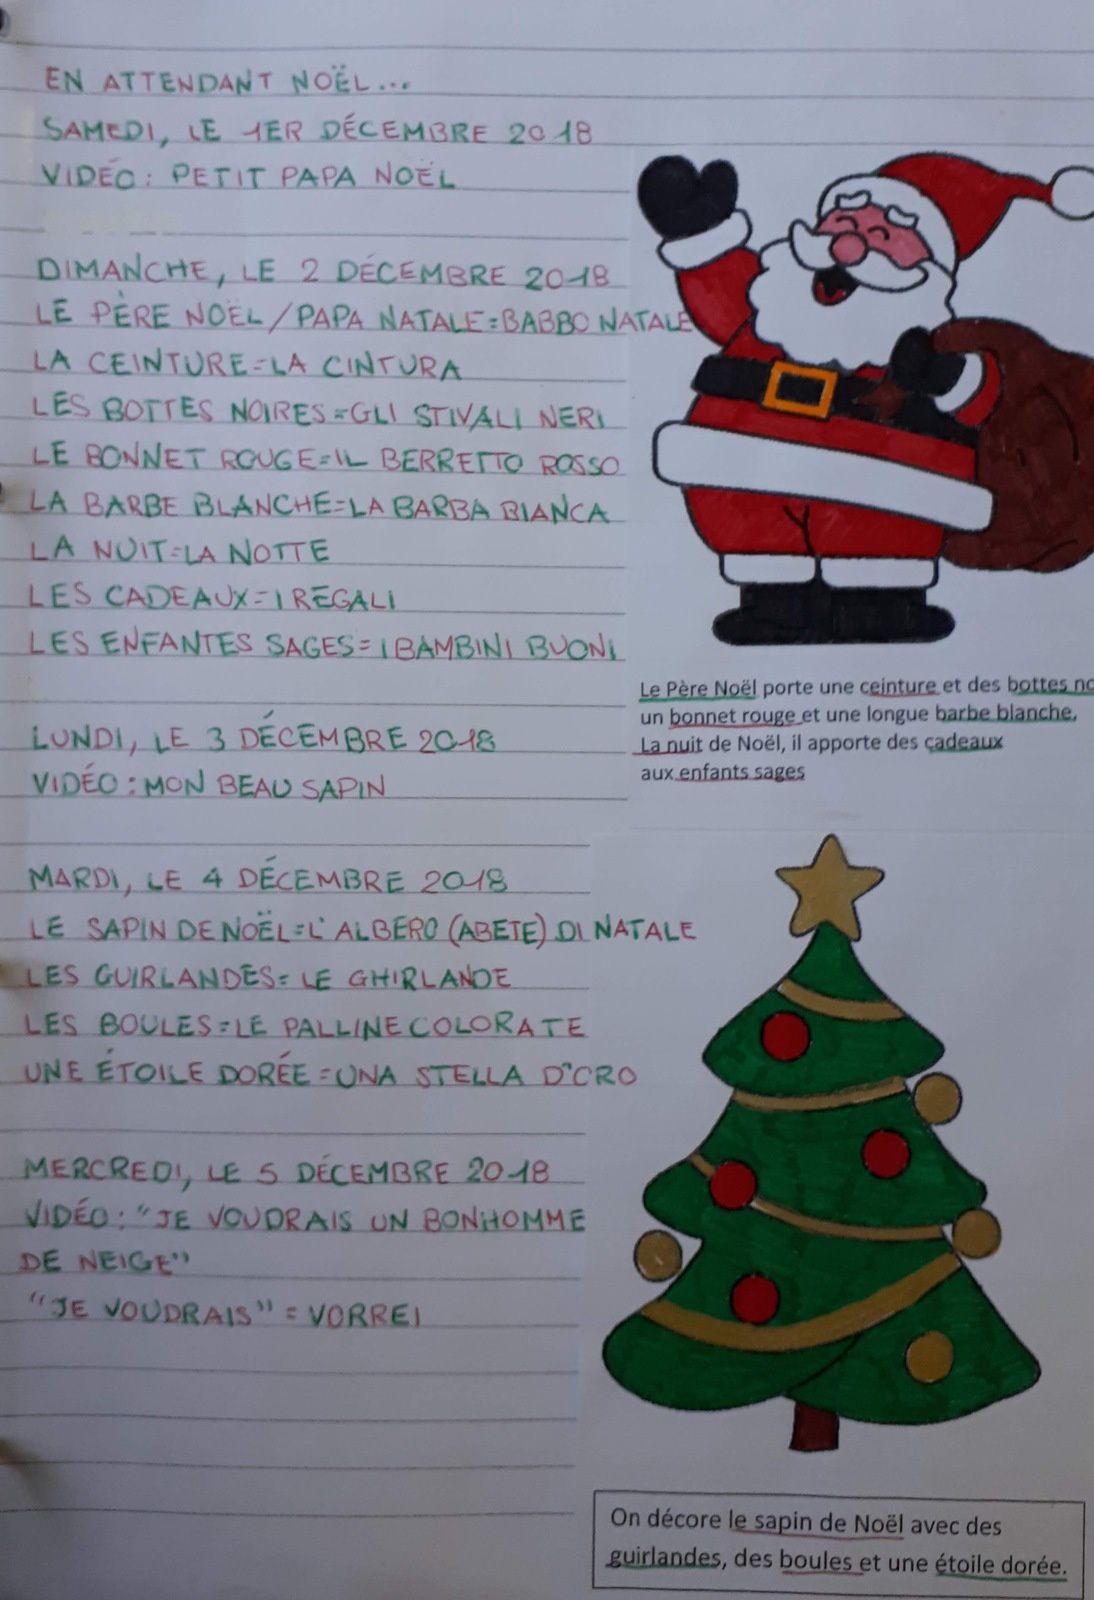 EN ATTENDANT NOËL...
SAMEDI, LE 1ER DÉCEMBRE 2018
VIDÉO: PETIT PAPA NOËL
DIMANCHE, LE 2 DÉCEMBRE 2018
LE PÈRE NOËL/PAPA NATALE=BABBO NATALE
LA CEINTURE=LA CINTURA
LES BOTTES NOIRES=GLI STIVALI NERI
LE BONNET ROUGE=IL BERRETTO ROSSO
LA BARBE BLANCHE=LA BARBA BIANCA
LA NUIT=LA NOTTE
LES CADEAUX=I REGALI
LES ENFANTES SAGES=I BAMBINI BUONI
Le Père Noël porte une ceinture et des bottes
un bonnet rouge et une longue barbe blanche.
La nuit de Noël, il apporte des cadeaux
aux enfants sages
LUNDI, LE 3 DÉCEMBRE 2018
VIDÉO: MON BEAU SAPIN
MARDI, LE 4 DÉCEMBRE 2018
LE SAPIN DE NOËL=L'ALBERO (ABETE) DI NATALE
LES GUIRLANDES=LE GHIRLANDE
LES BOULES=LE PALLINE COLORATE
UNE ÉTOILE DORÉE=UNA STELLA D'ORO
MERCREDI, LE 5 DÉCEMBRE 2018
VIDÉO: "JE VOUDRAIS UN BONHOMME
DE NEIGE"
"JE VOUDRAIS" = VORREI
On décore le sapin de Noël avec des
guirlandes, des boules et une étoile dorée.